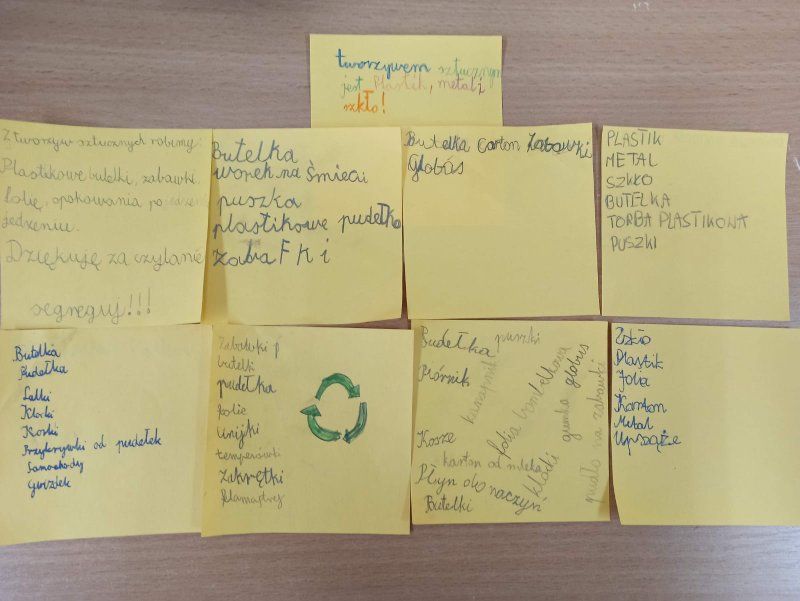 tworzywem sztucznym
jest Plastik, metal i
szkło!
Z tworzyw sztucznych robimy:
Plastikowe butelki, zabawki,
folię, opakowania po jedzeniu
jedzeniu.
Dziękuję za czytanie
segreguj!!!
Butelka
worek na śmieci
puszka
plastikowe pudełka
żaba FKi
Butelka Carton Zabawki
Globós
PLASTIK
METAL
SZKŁO
BUTELKA
TORBA PLASTIKOWA
PUSZKI
Butelka
Pudełka
Lalki
Klocki
Koski
Przykrywki od pudełek
Samochody
Gwizdek
Zabawki p
butelki
pudełka
folie
linijki
temperówki
Zakrętki
Pudełka puszki
Piórnik
kanapnik
Kosze
karton od mleka
Płyn do naczyń
Butelki
folia bombelkowa
klocki
gumka globus
pudło na zabawki
Szkło
Plastik
Folia
Karton
Metal
Uprząże